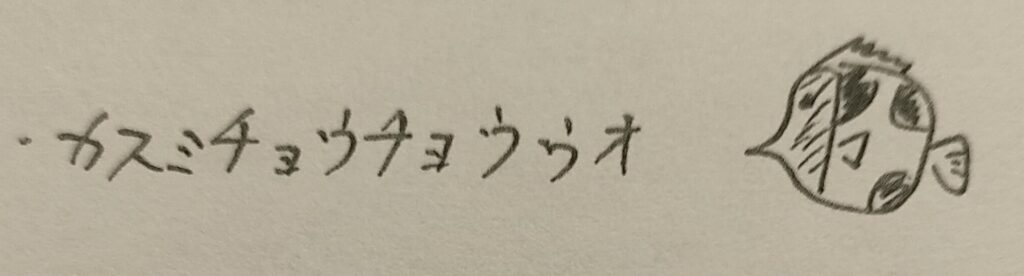 ・カスミチョウチョウウオ